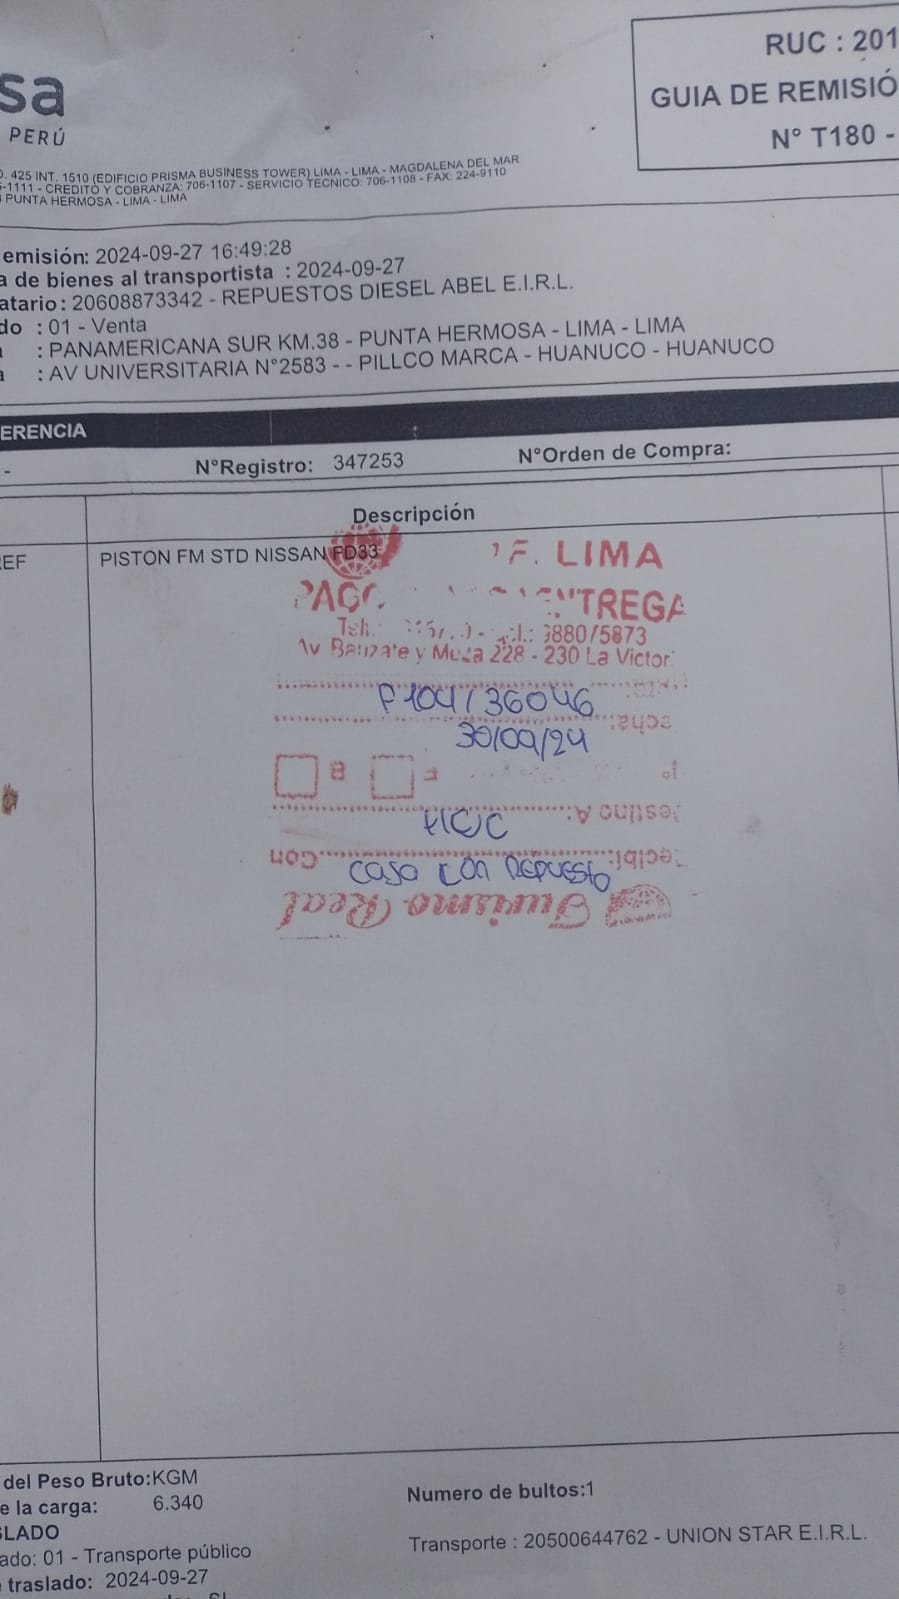 sa
PERÚ
RUC : 201
GUIA DE REMISIÓ
N° T180 -
. 425 INT. 1510 (EDIFICIO PRISMA BUSINESS TOWER) LIMA - LIMA - MAGDALENA DEL MAR
-1111 - CREDITO Y COBRANZA: 706-1107 - SERVICIO TECNICO: 706-1108 - FAX: 224-9110
PUNTA HERMOSA - LIMA - LIMA
emisión: 2024-09-27 16:49:28
a de bienes al transportista : 2024-09-27
atario : 20608873342 - REPUESTOS DIESEL ABEL E.I.R.L.
do : 01 - Venta
: PANAMERICANA SUR KM.38 - PUNTA HERMOSA - LIMA - LIMA
a : AV UNIVERSITARIA N°2583 - - PILLCO MARCA - HUANUCO - HUANUCO
ERENCIA
- N°Registro: 347253 N°Orden de Compra:
Descripción
EF PISTON FM STD NISSAN FD33
F. LIMA
PAGO ENTREGA
988075873
Av Bauzate y Meza 228 - 230 La Victor
echa:
30/09/24
F B
Destino A:
HCO
Recibí: Con
Caja con Repuesto
Turismo Real
del Peso Bruto:KGM
e la carga: 6.340
Numero de bultos:1
SLADO
ado: 01 - Transporte público
Transporte : 20500644762 - UNION STAR E.I.R.L.
traslado: 2024-09-27